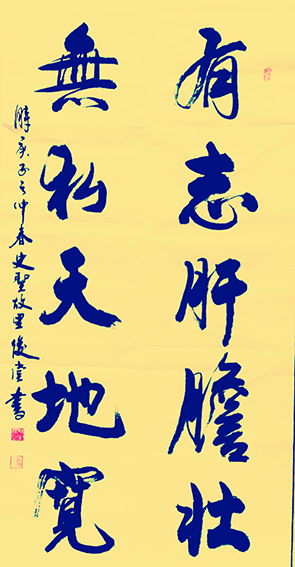 有志肝膽壯
無私天地寬
庚子之仲春史聖故里俊堂書